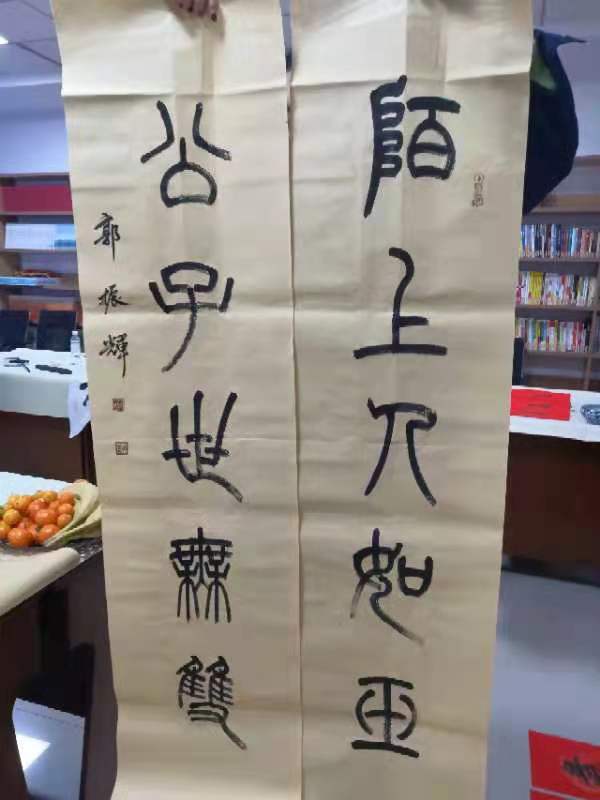 陌上人如玉
公子世無雙
郭振輝